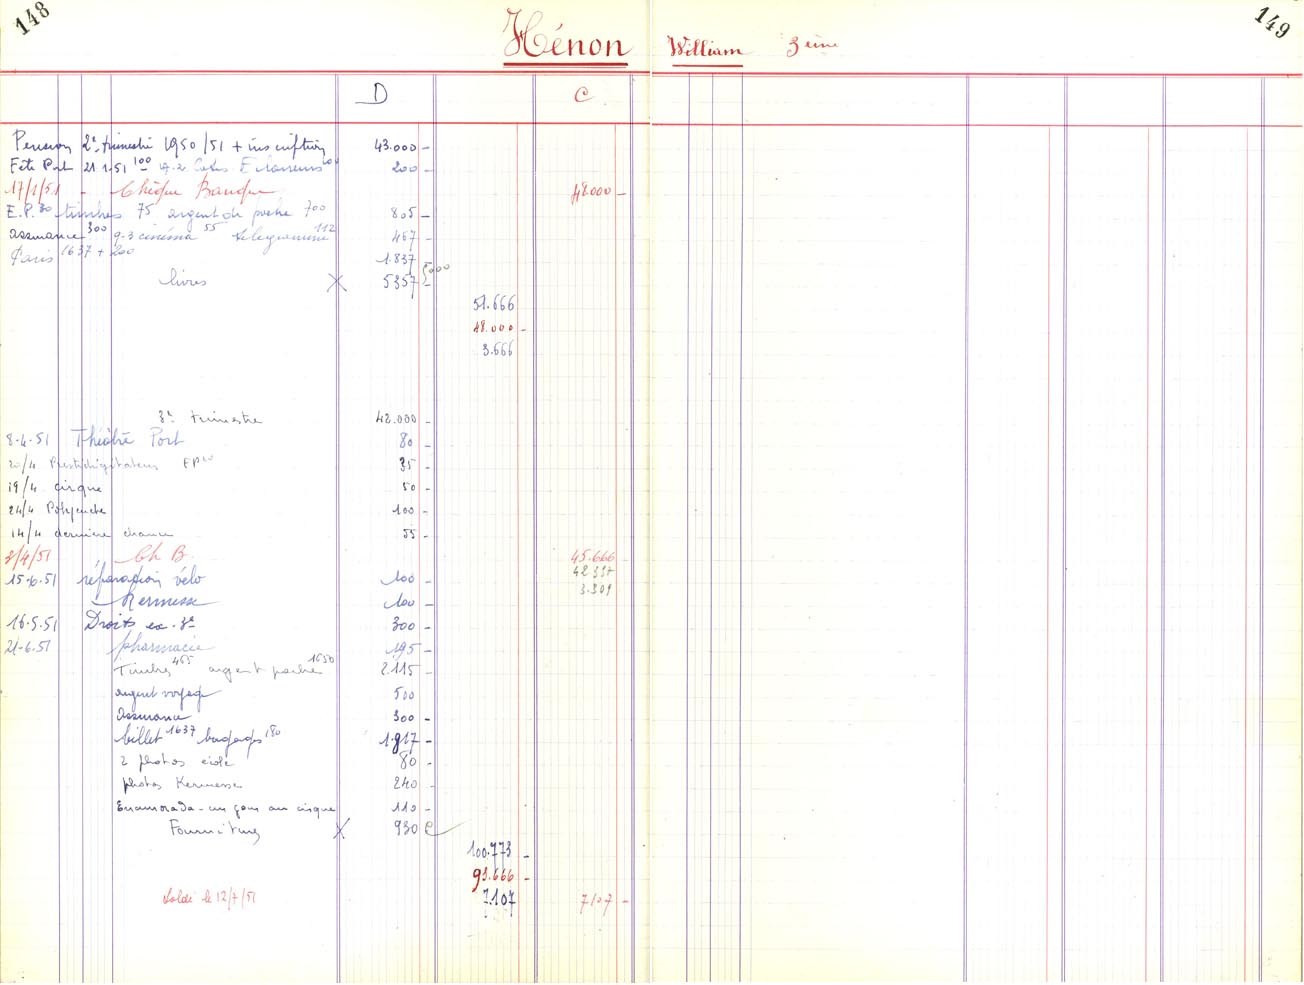 148
149
Hénon William 3 eme
D C
Pension 2e trimestre 1950/51 + inscription 43.000 -
Fête Port 21 1.51 100 200 -
17/1/51 - Chèque Banque 48.000 -
E.P. 30 timbres 75 argent de poche 700 805 -
assurance 300 9-3 cinéma 55 telegramme 112 467 -
Paris 1637 + 200 1.837
livres X 5357
51.666
48.000 -
3.666
3e trimestre 42.000 -
8-4.51 Théâtre Port 80 -
20/4 Prestidigitateur EP 35 -
19/4 cirque 50 -
24/4 Polyeucte 100 -
14/4 dernière chance 55 -
3/4/51 Ch B. 45.666
42 357
3.309
15.6.51 réparation vélo 100 -
Kermesse 100 -
16.5.51 Droits ex. 3e 300 -
21-6.51 pharmacie 195 -
Timbres 465 argent poche 1650 2115 -
argent voyage 500 -
assurance 300 -
billet 1637 bagages 180 1.817 -
2 photos école 80 -
photos Kermesse 240 -
Enamorada - un jour au cirque 110 -
Fournitures X 930
100.773 -
93.666 -
Soldé le 12/7/51 7.107 7107 -